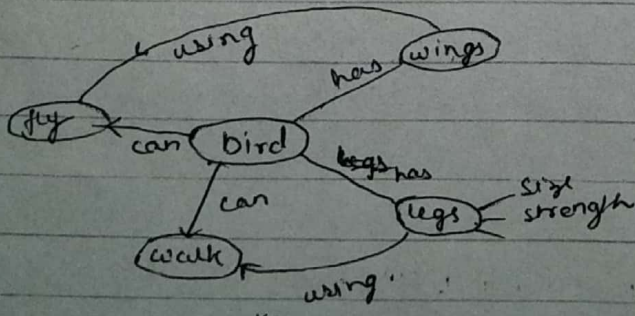 using
wings
has
fly
can
bird
has
can
legs
size
strength
walk
using